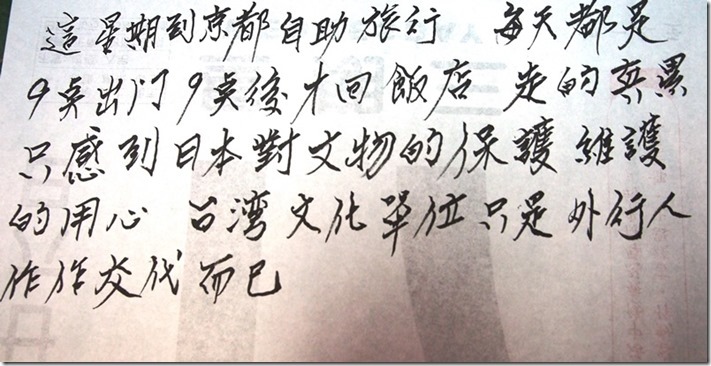 這星期到京都自助旅行 每天都是
9点出门9点後才回飯店 走的真累
只感到日本對文物的保護維護
的用心 台湾文化單位只是外行人
作作交代而已